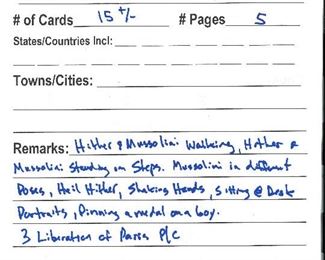 # of Cards 15 +/- # Pages 5
States/Countries Incl:
Towns/Cities:
Remarks: Hitler & Mussolini Walking, Hitler &
Mussolini Standing on Steps. Mussolini in different
Poses, Heil Hitler, Shaking Hands, Sitting @ Desk
Portraits, Pinning a medal on a boy.
3 Liberation of Paris P/C